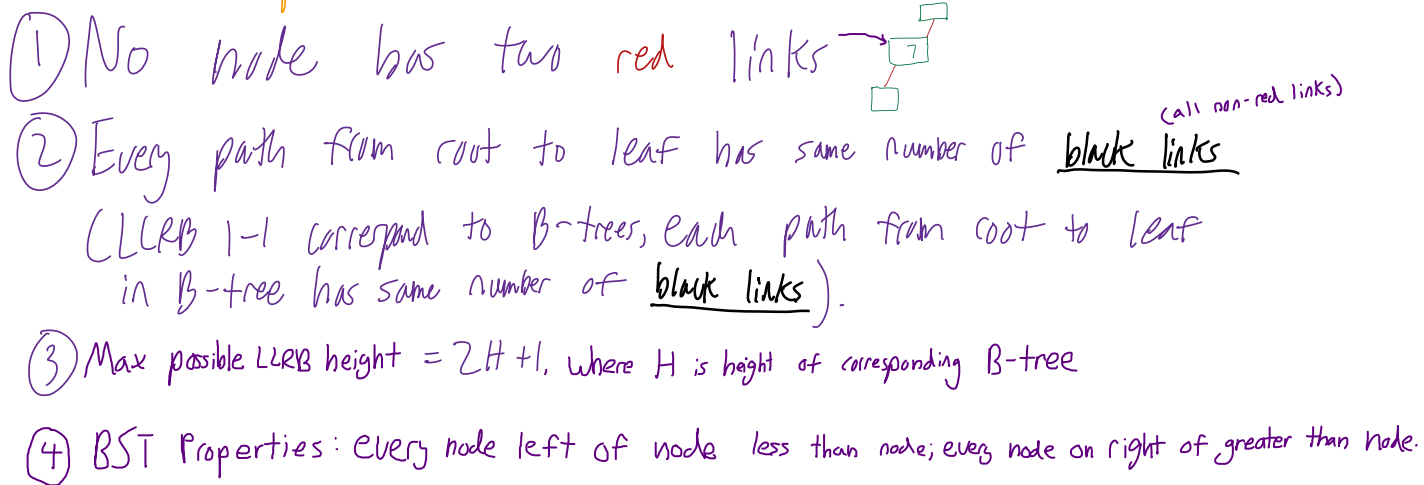 ① No node has two red links
7
(all non-red links)
② Every path from root to leaf has same number of black links
(LLRB 1-1 correspond to B-trees, each path from root to leaf
in B-tree has same number of black links).
③ Max possible LLRB height = 2H+1, where H is height of corresponding B-tree
④ BST Properties: every node left of node less than node; every node on right of greater than node.